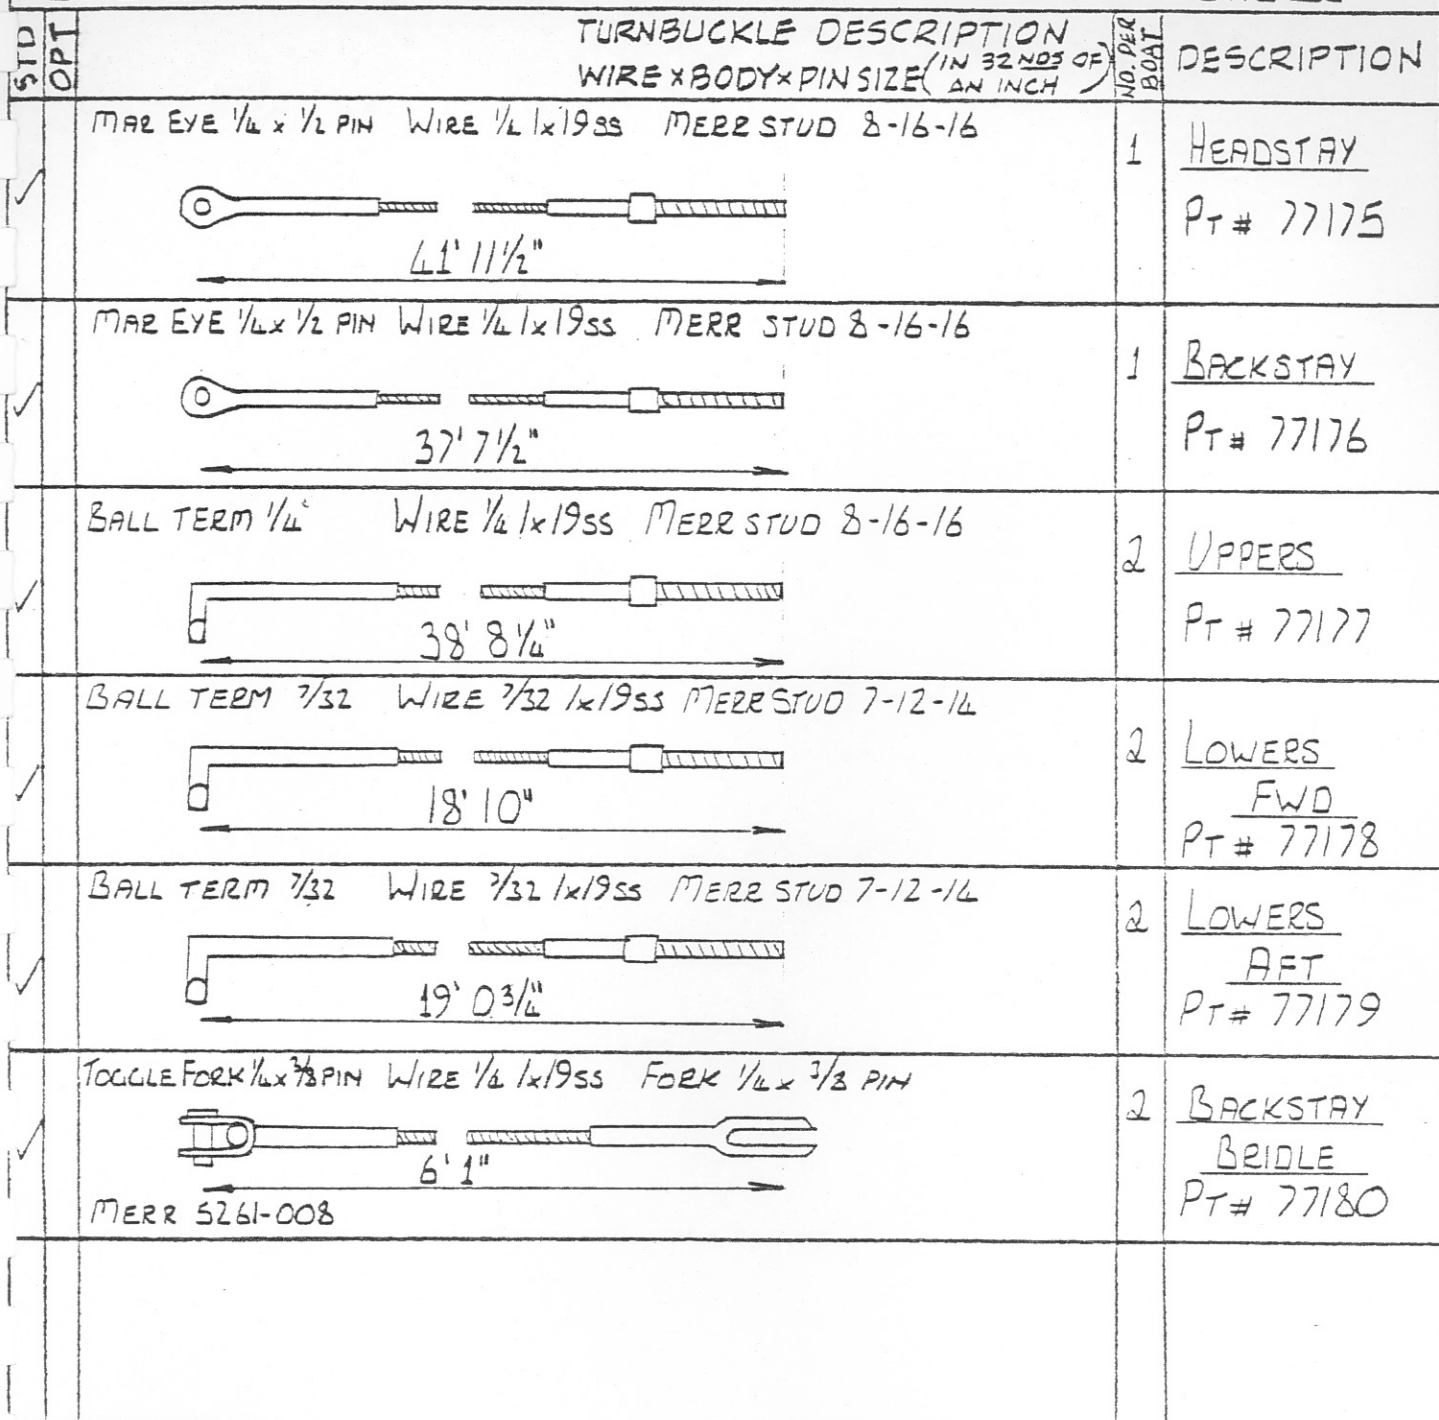 STD
OPT
TURNBUCKLE DESCRIPTION
WIRE x BODY x PIN SIZE (IN 32NDS OF AN INCH)
NO. PER BOAT
DESCRIPTION
MAR EYE 1/4 x 1/2 PIN WIRE 1/4 1x19 SS MERR STUD 8-16-16
41' 11 1/2"
1
HEADSTAY
PT # 77175
MAR EYE 1/4 x 1/2 PIN WIRE 1/4 1x19 SS MERR STUD 8-16-16
37' 7 1/2"
1
BACKSTAY
PT # 77176
BALL TERM 1/4" WIRE 1/4 1x19 SS MERR STUD 8-16-16
38' 8 1/4"
2
UPPERS
PT # 77177
BALL TERM 7/32 WIRE 7/32 1x19 SS MERR STUD 7-12-14
18' 10"
2
LOWERS
FWD
PT # 77178
BALL TERM 7/32 WIRE 7/32 1x19 SS MERR STUD 7-12-14
19' 0 3/4"
2
LOWERS
AFT
PT # 77179
TOGGLE FORK 1/4 x 3/8 PIN WIRE 1/4 1x19 SS FORK 1/4 x 3/8 PIN
6' 1"
MERR 5261-008
2
BACKSTAY
BRIDLE
PT # 77180